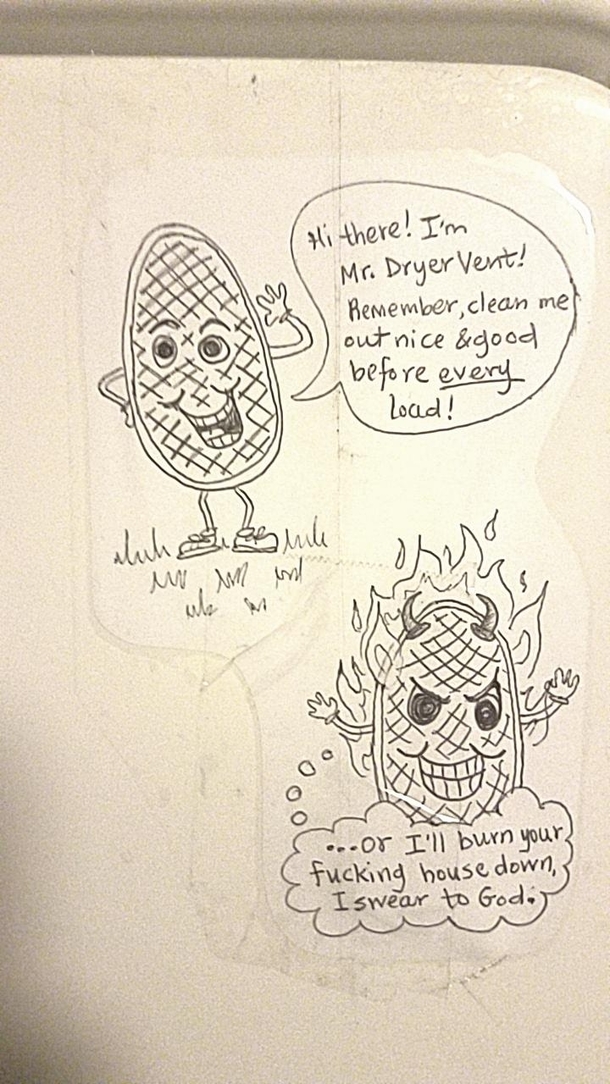 Hi there! I'm
Mr. Dryer Vent!
Remember, clean me
out nice & good
before every
load!
...or I'll burn your
fucking house down,
I swear to God.